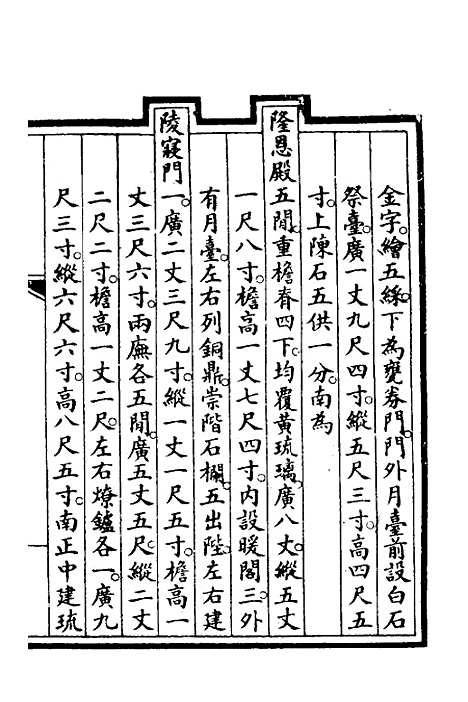 金字。繪五綵。下為甕券門。門外月臺前設白石
祭臺。廣一丈九尺四寸。縱五尺三寸。高四尺五
寸。上陳石五供一分。南為
隆恩殿五間。重檐脊四下。均覆黃琉璃。廣八丈。縱五丈
一尺八寸。檐高一丈七尺四寸。內設暖閣三。外
有月臺。左右列銅鼎。崇階石欄。五出陛。左右建
陵寢門一。廣二丈三尺九寸。縱一丈一尺五寸。檐高一
丈三尺六寸。兩廡各五間。廣五丈五尺。縱二丈
二尺二寸。檐高一丈二尺。左右燎鑪各一。廣九
尺三寸。縱六尺六寸。高八尺五寸。南正中建琉